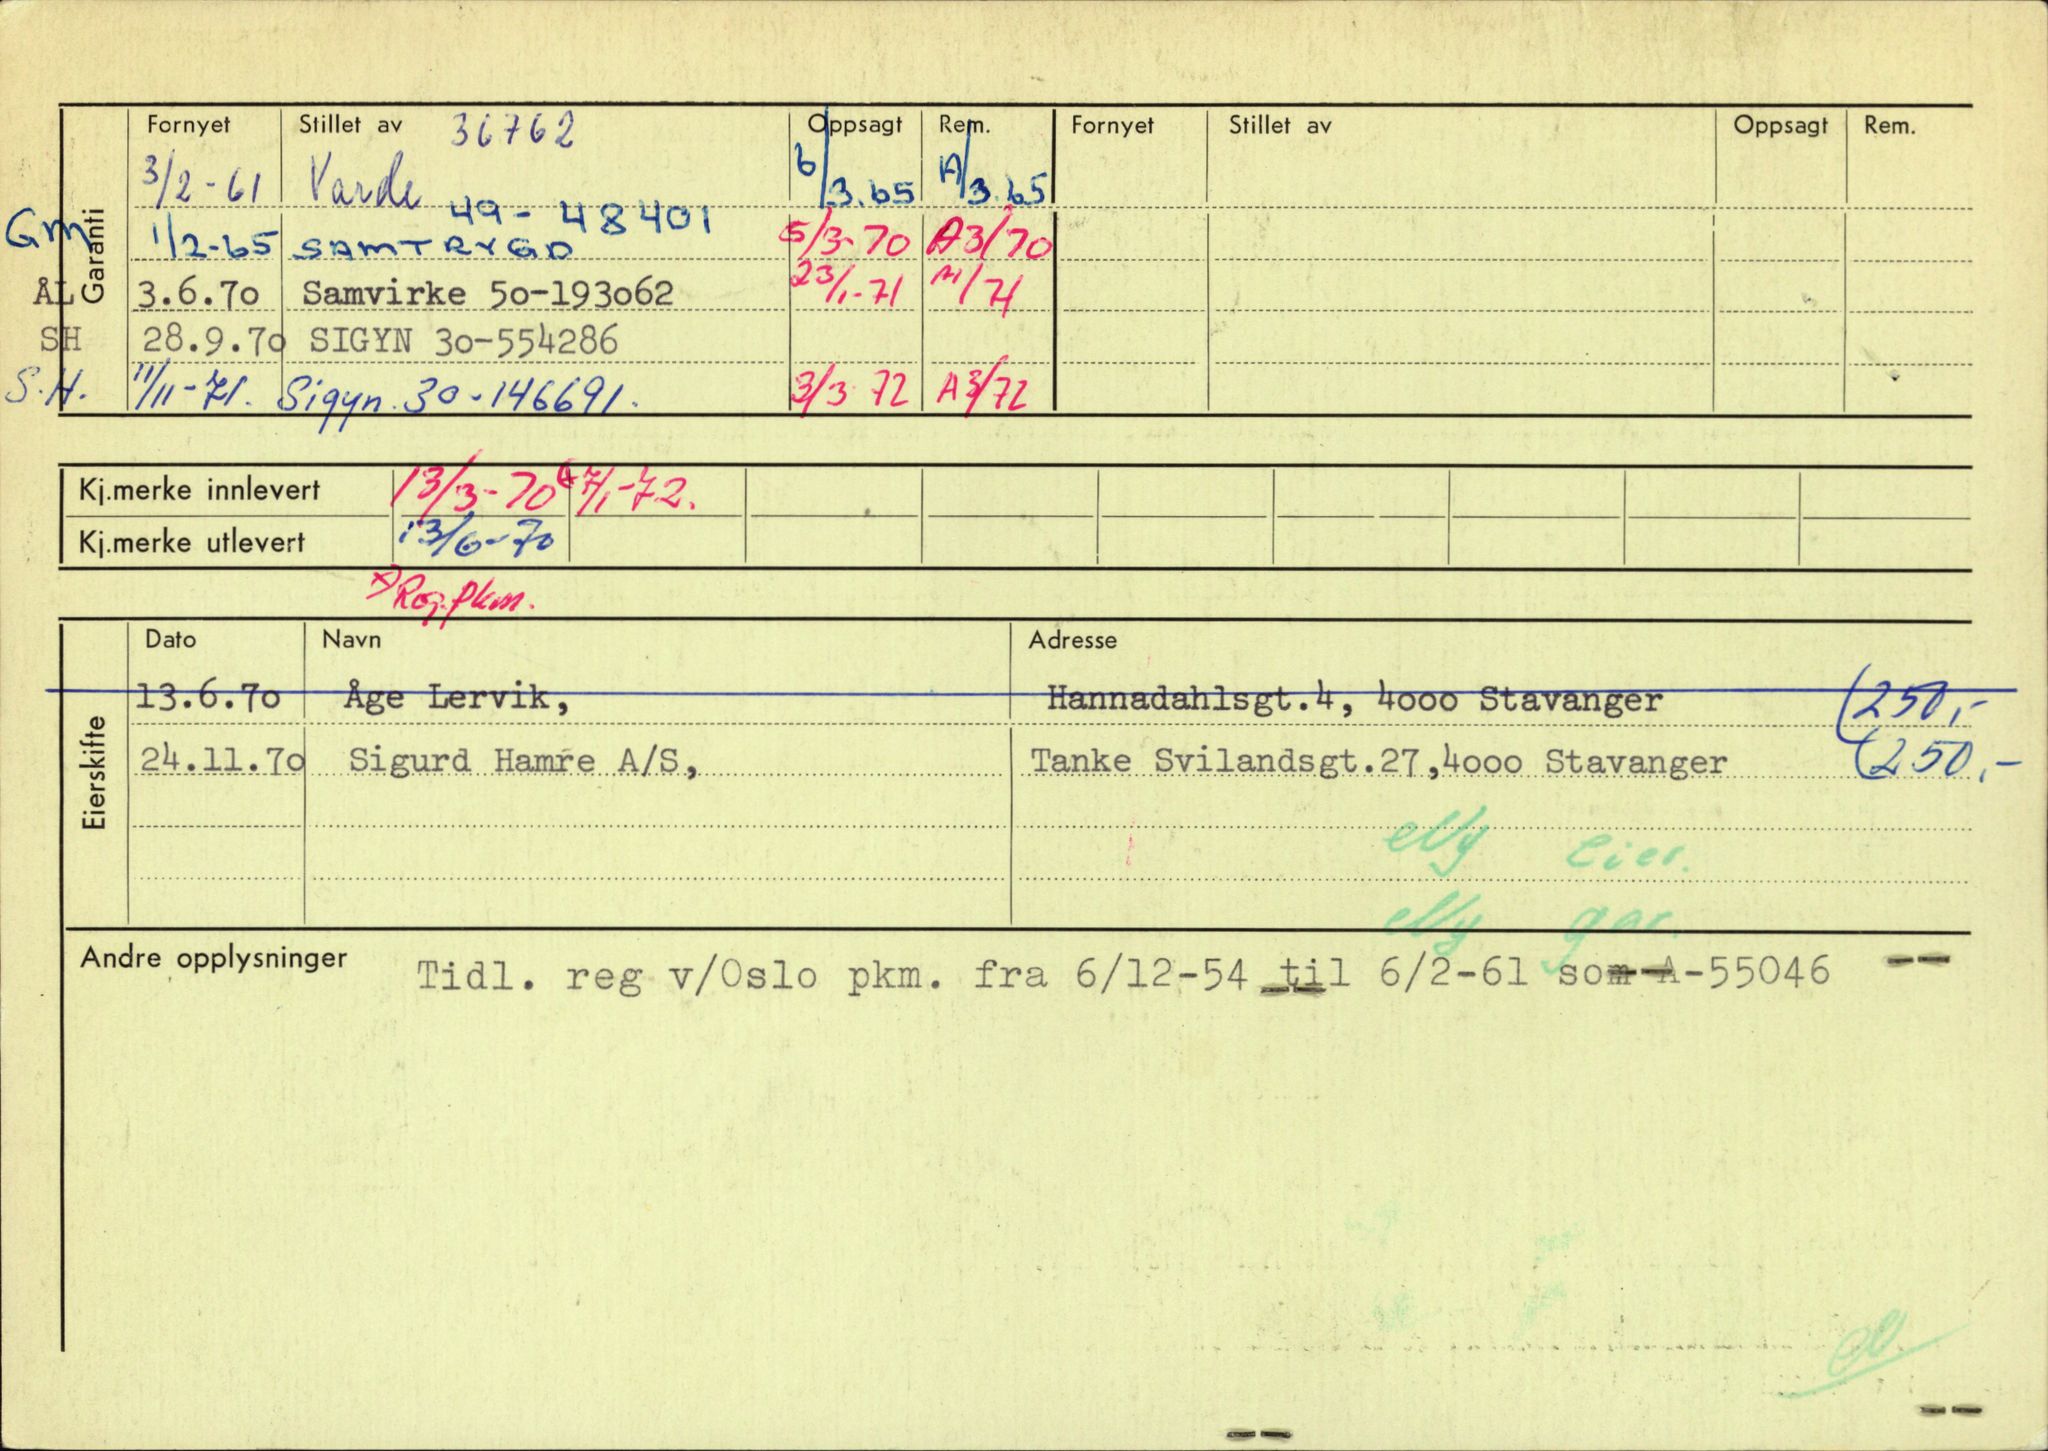 Garanti
Fornyet Stillet av 36762 Oppsagt Rem. Fornyet Stillet av Oppsagt Rem.
3/2-61 Varde 6/3.65 A/3.65
49-48401
Gm 1/2-65 SAMTRYGD 5/3-70 A3/70
ÅL 3.6.70 Samvirke 50-193062 23/1-71 /71
SH 28.9.70 SIGYN 30-554286
S.H. 11/11-71. Sigyn. 30-146691. 3/3-72 A3/72
Kj.merke innlevert 13/3-70 7/1-72.
Kj.merke utlevert 13/6-70
x) Rog.pkm.
Eierskifte
Dato Navn Adresse
13.6.70 Åge Lervik, Hannadahlsgt.4, 4000 Stavanger (250,-
24.11.70 Sigurd Hamre A/S, Tanke Svilandsgt.27,4000 Stavanger (250,-
Ny Eier.
Ny gar.
Andre opplysninger Tidl. reg v/Oslo pkm. fra 6/12-54 til 6/2-61 som A-55046